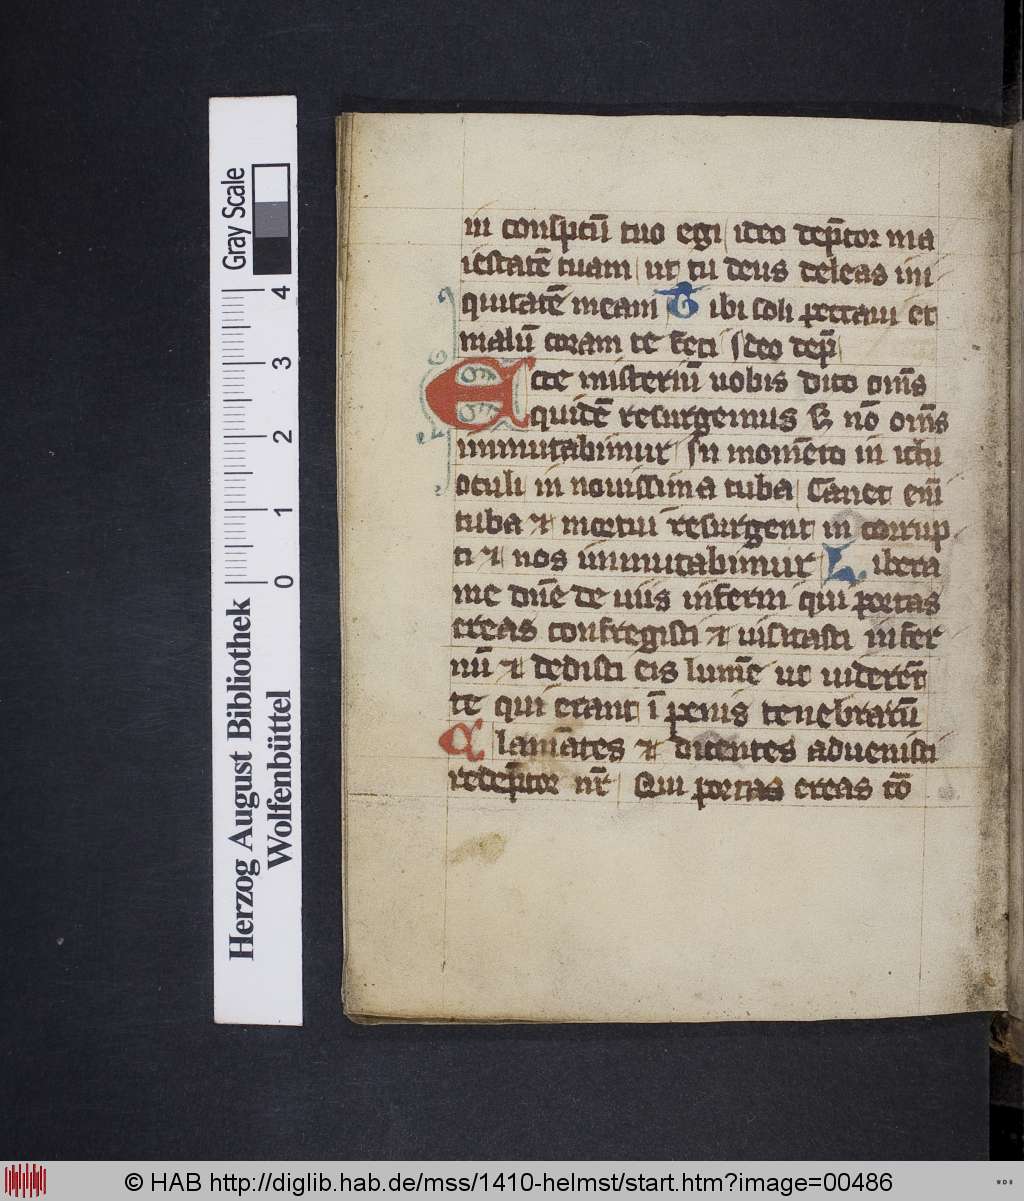 in conspectū tuo egi ideo dep̄cor ma
iestatē tuam ut tu deus deleas ini
quitatē meam Tibi soli peccaui et
malū coram te feci Ideo dep̄
Ecce misteriū uobis dico om̄s
quidē resurgemus s; nō om̄s
immutabimur In momēto in ictu
oculi in nouissima tuba Canet em̄
tuba et mortui resurgent in corrup
ti et nos immutabimur Libera
me dn̄e de uiis inferni qui portas
ereas confregisti et uisitasti infer
nū et dedisti eis lumē ut uiderēt
te qui erant ī penis tenebrarū
Clamātes et dicentes aduenisti
redēptor nr̄ Qui portas ereas cō
Gray Scale
4
3
2
1
0
Herzog August Bibliothek
Wolfenbüttel
© HAB http://diglib.hab.de/mss/1410-helmst/start.htm?image=00486